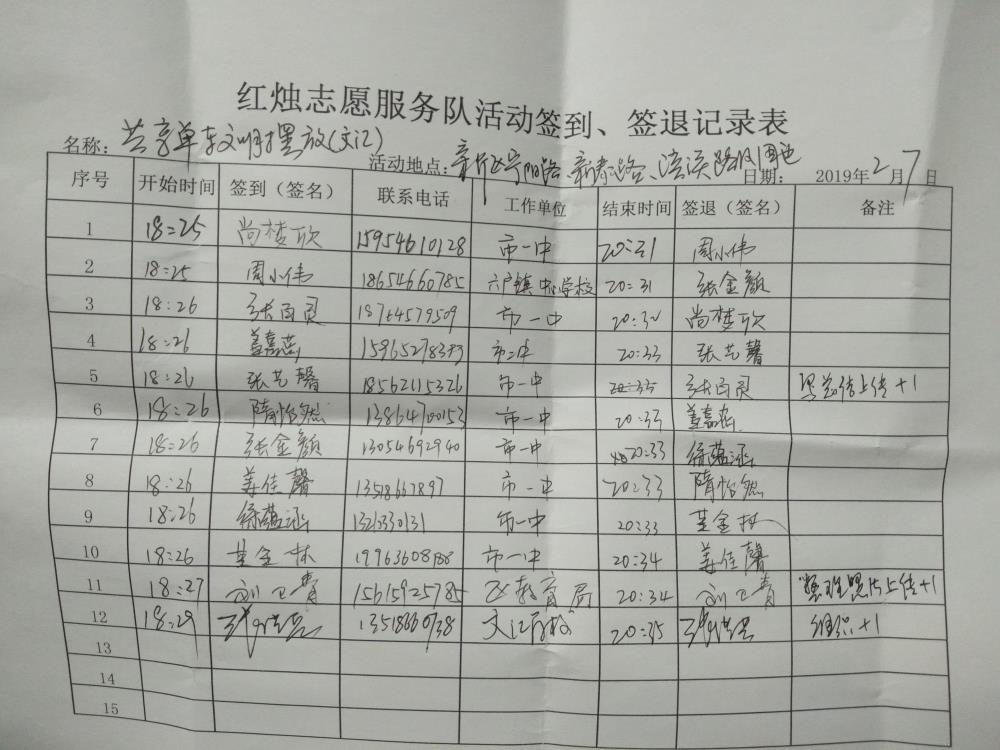 红烛志愿服务队活动签到、签退记录表
名称：共享单车文明摆放(文汇)
活动地点： 路、新春路、 路周边 日期： 2019年2月7日
序号 开始时间 签到（签名） 联系电话 工作单位 结束时间 签退（签名） 备注
1 18:25 尚梦欣 15954610128 市一中 20:31 周小伟
2 18:25 周小伟 18654660785 六户镇中心学校 20:31 张金颜
3 18:26 张百灵 18764579509 市一中 20:32 尚梦欣
4 18:26 盖嘉蕊 市二中 20:33 张艺馨
5 18:26 张艺馨 18562115326 市一中 20:33 张百灵 上传+1
6 18:26 隋怡然 13864700153 市一中 20:33 盖嘉蕊
7 18:26 张金颜 13054692940 市一中 20:33 徐蕴涵
8 18:26 姜佳馨 13518667897 市一中 20:33 隋怡然
9 18:26 徐蕴涵 市一中 20:33 金林
10 18:26 金林 市一中 20:34 姜佳馨
11 18:27 刘卫青 15615925785 区教育局 20:34 刘卫青 整理照片上传+1
12 18:29 13518660738 文汇学校 20:35 组织+1
13
14
15